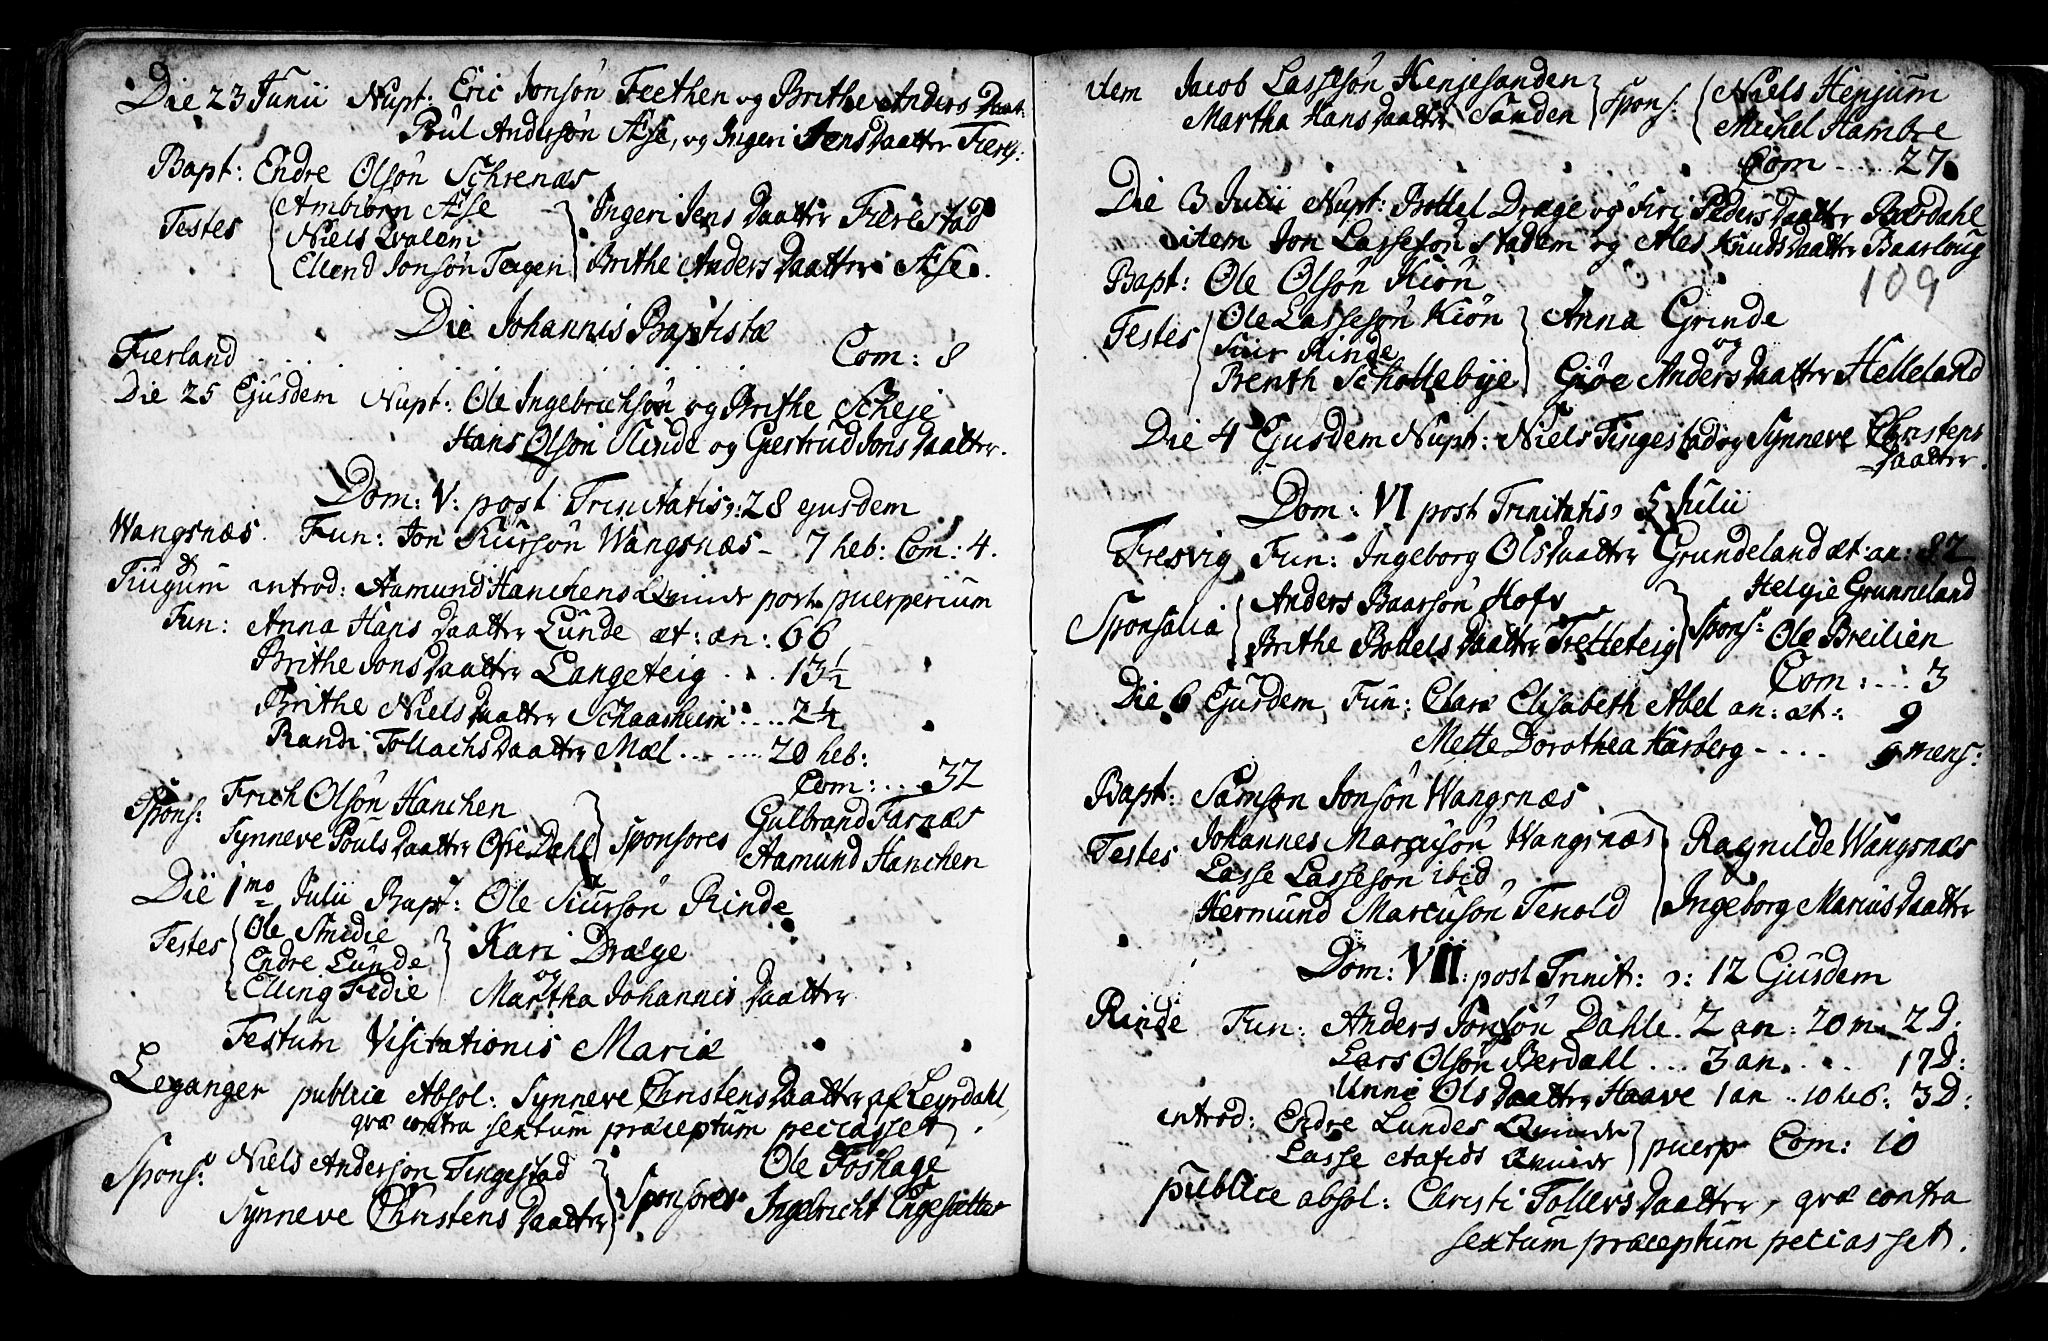 Die 23 Junii Nupt: Eric Jonsøn Feethen og Brithe Anders Daat:
Poul Andersøn Æse, og Ingeri Jens Daatter Fiers:
Bapt: Endre Olsøn Schrenæs
Testes Ambiørn Æse
Niels Qvalem
Ellend Jonsøn Teigen
Ingeri Jens Daatter Fierestad
Brithe Anders Daatter Æse.
Die Johannis Baptistæ
Fierland Com: 8
Die 25 Ejusdem Nupt: Ole Ingebrichsøn og Brithe Scheje
Hans Olsøn Slinde og Giertrud Jons Daatter.
Dom: V: post Trinitatis, : 28 ejusdem
Wangsnæs. Fun: Jon Siursøn Wangsnæs - 7 heb: Com: 4.
Tiugum introd: Aamund Hanchens Qvinde post puerperium
Fun: Anna Hans Daatter Lunde æt: an: 66
Brithe Jons Daatter Langeteig . . . 13½
Brithe Niels Daatter Schaasheim . . . 2¼
Randi Tollachs Daatter Mæl . . . . . 20 heb:
Com: . . . 32
Spons: Erich Olsøn Hanchen
Synneve Pouls Daatter Ofre Dahl
Sponsores Gulbrand Farnæs
Aamund Hanchen
Die 1mo Julii Bapt: Ole Siursøn Rinde
Testes Ole Smidie
Endre Lunde
Elling Fedie
Kari Dræge
og
Martha Johannis Daatter
Festum Visitationis Mariæ
Leganger publice Absol: Synneve Christens Daatter af Leyrdahl,
qvæ contra sextum præceptum peccasset.
Spons: Niels Andersøn Tingestad
Synneve Christens Daatter
Sponsores Ole Foshage
Ingebricht Engesætter
item Jacob Lassesøn Henjesanden
Martha Hans Daatter Sanden
Spons: Niels Henjum
Michel Hambre
Com . . . . 27.
Die 3 Julii Nupt: Bottel Dræge og Siri Peders Daatter Barsdahl
item Jon Lassesøn Stadem og Ales Knuds Daatter Baarloug
109
Bapt: Ole Olsøn Kiøn
Testes Ole Lassesøn Kiøn
Siur Rinde
Benth Schottebye
Anna Grinde
og
Giøe Anders Daatter Helleland
Die 4 Ejusdem Nupt: Niels Tingestad og Synneve Christens
Daatter.
Dom: VI post Trinitatis, 5 Julii
Fresvig Fun: Ingeborg Ols Daatter Grundeland æt: an: 82
Sponsalia Anders Baarsøn Hofv
Brithe Bottels Daatter Tretteteig
Spons: Helgie Grunneland
Ole Breilien
Com: . . . 3
Die 6 Ejusdem, Fun: Clara Elisabeth Abel an: æt: 9
Mette Dorothea Harberg - . . . . 9 mens:
Bapt: Samson Jonsøn Wangsnæs
Testes Johannes Marcusøn Wangsnæs
Lasse Lassesøn ibid,
Hermund Marcusøn Tenold
Ragnilde Wangsnæs
Ingeborg Marcus Daatter
Dom: VII: post Trinit: ɔ: 12 Ejusdem
Rinde Fun: Anders Jonsøn Dahle. 2 an: 20 m. 2 D:
Lars Olsøn Berdahl . . . 3 an. . . . 17 D:
Unni Ols Daatter Haave 1 an . . 10 heb: 3 D:
introd: Endre Lundes Qvinde
Lasse Qvinde
puerp Com: 10
publice absol: Christi Tollers Daatter, qvæ contra
sextum præceptum peccasset.